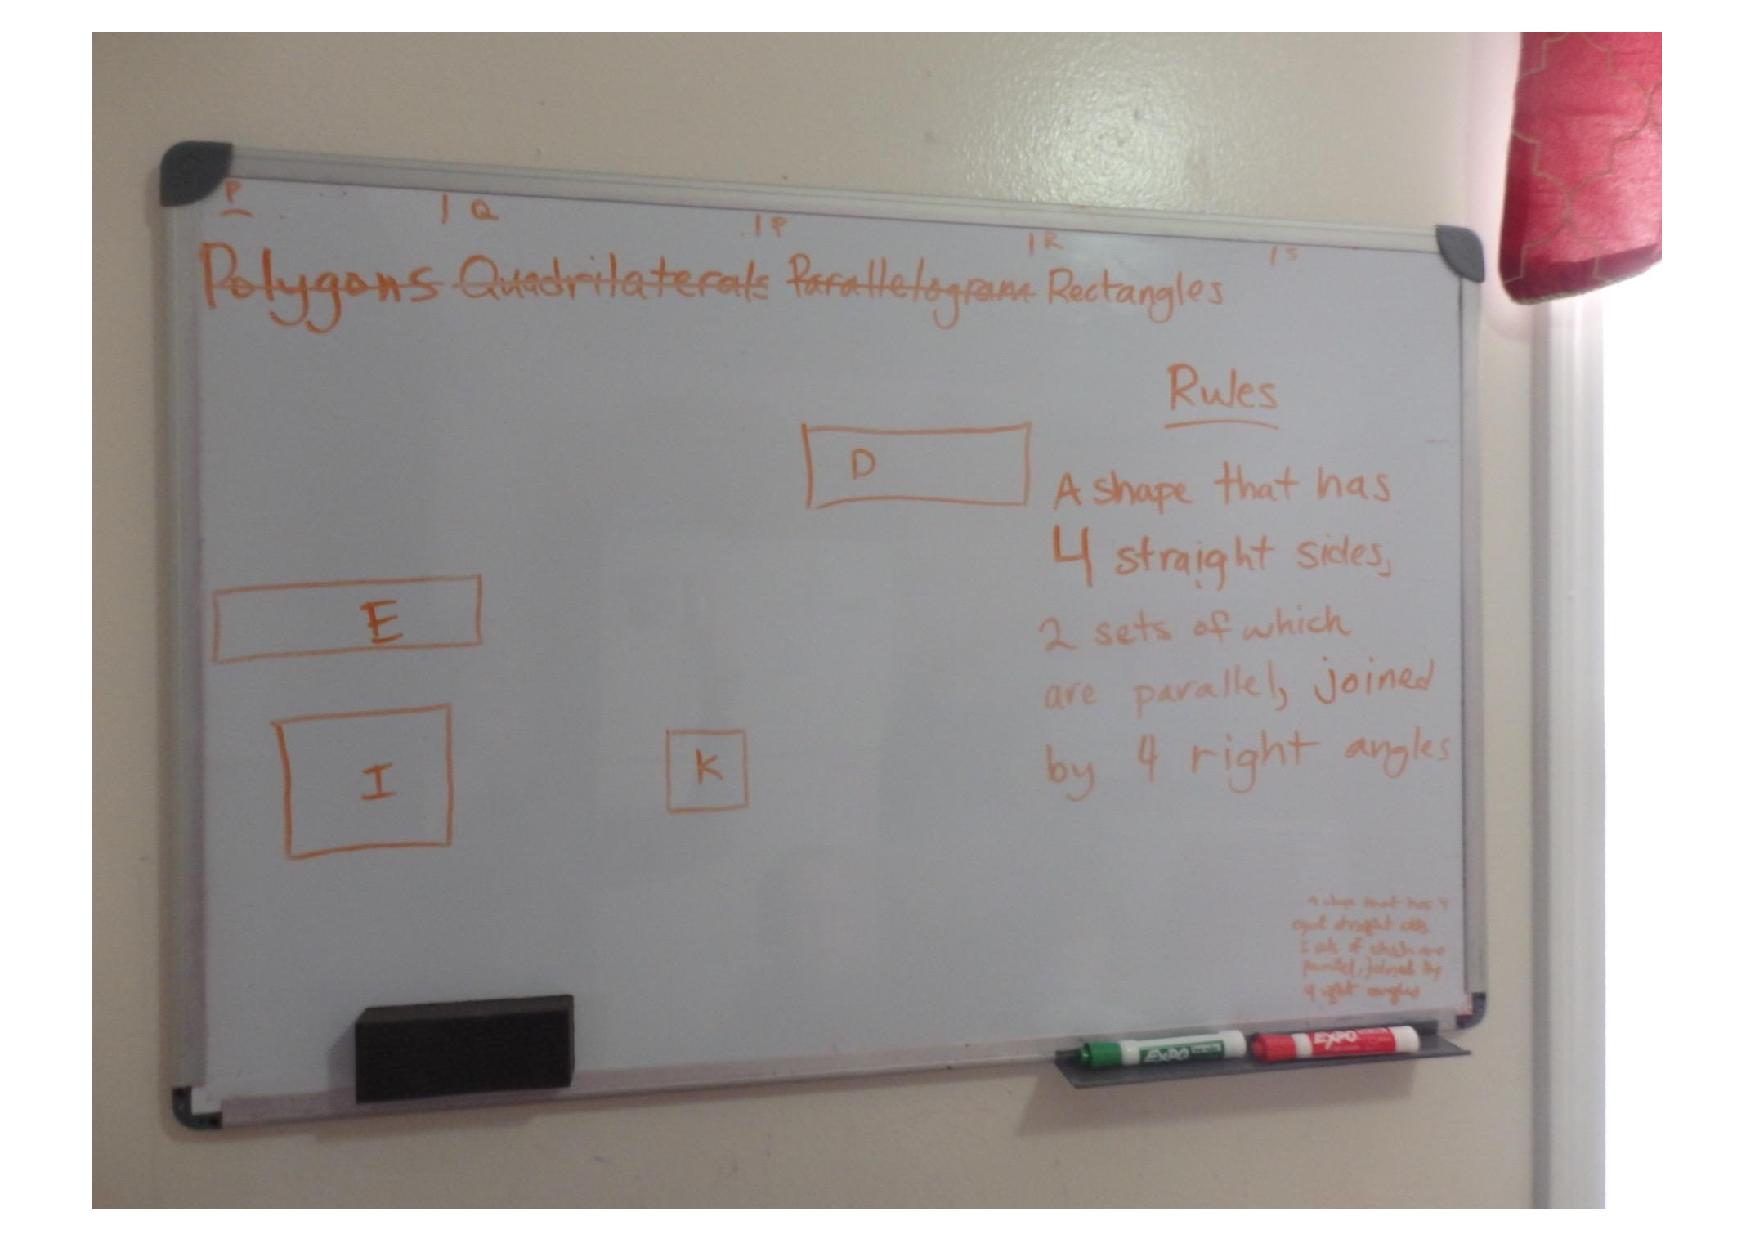 P | Q | P | R | S
Polygons Quadrilaterals Parallelogram Rectangles
Rules
D
A shape that has
4 straight sides,
E
2 sets of which
are parallel, joined
I
K
by 4 right angles
A shape that has 4
equal straight sides
2 sets of which are
parallel, joined by
4 right angles
EXPO
EXPO